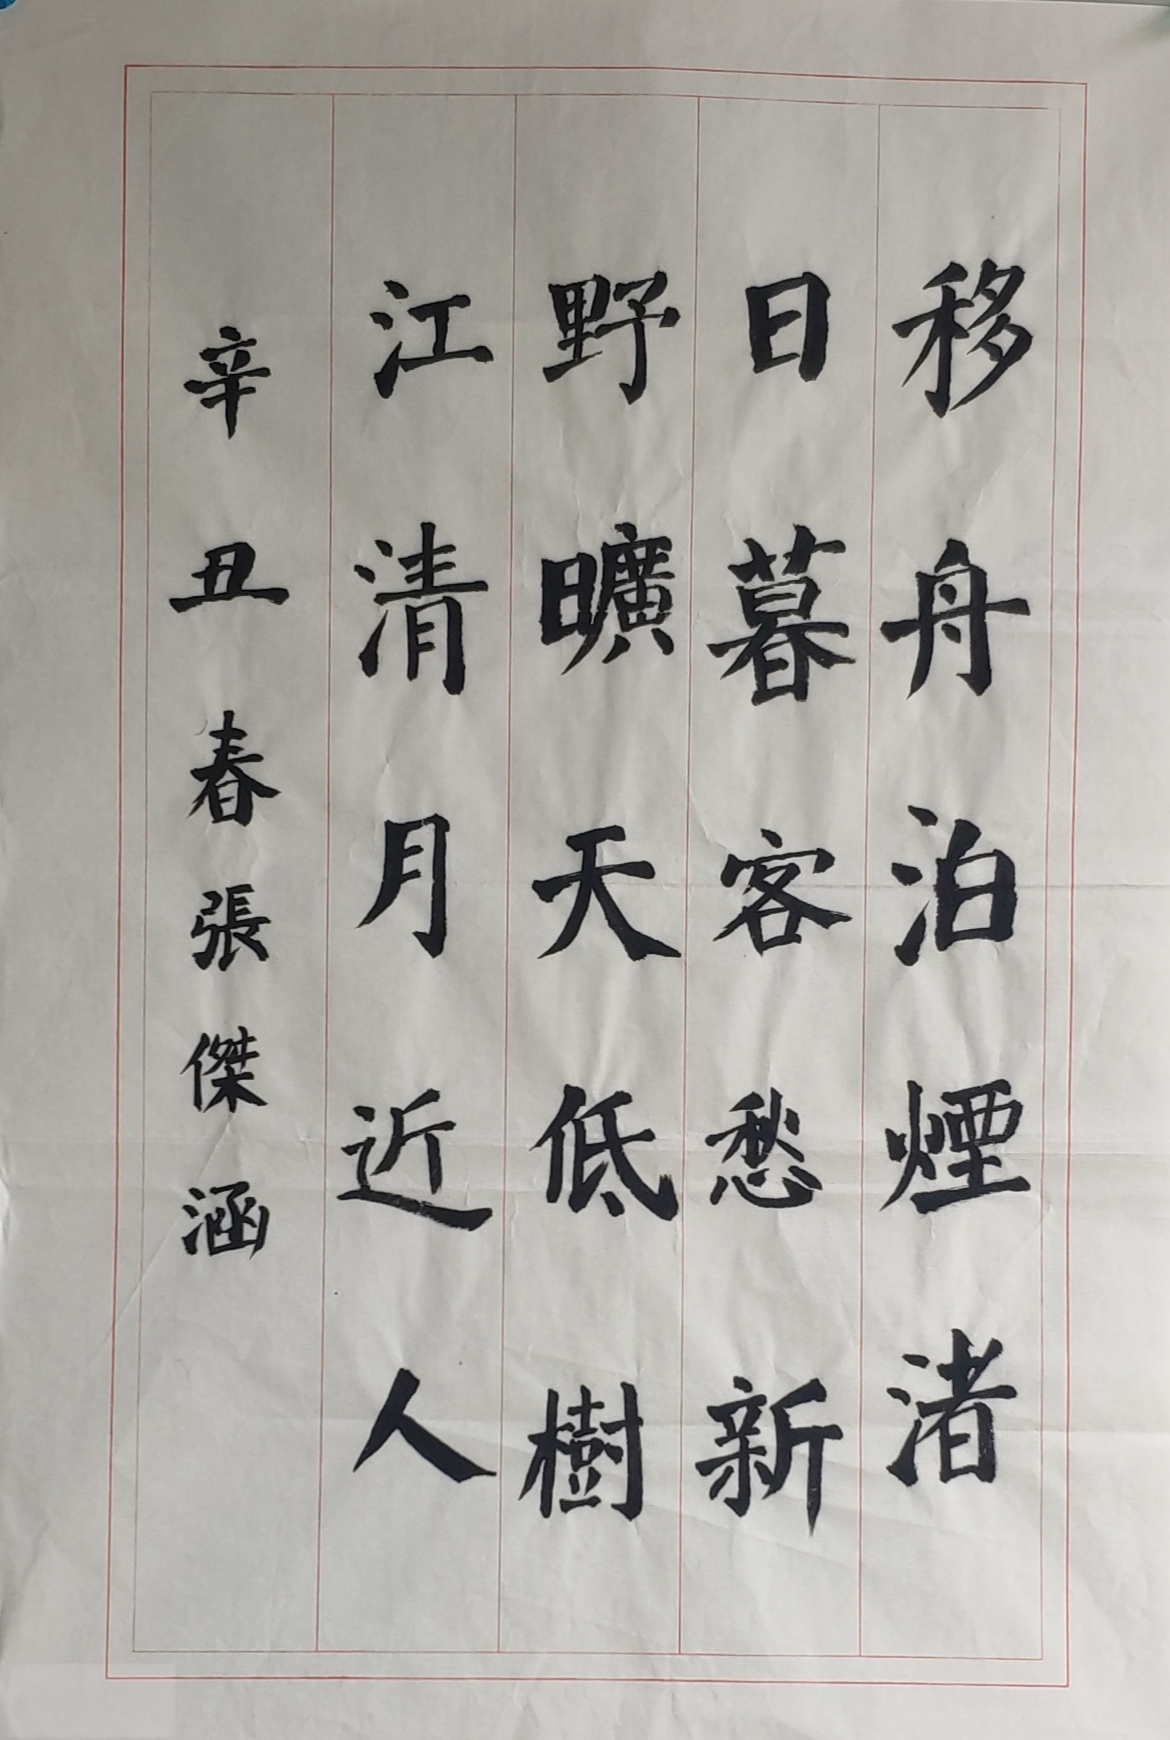 移舟泊煙渚
日暮客愁新
野曠天低樹
江清月近人
辛丑春張傑涵